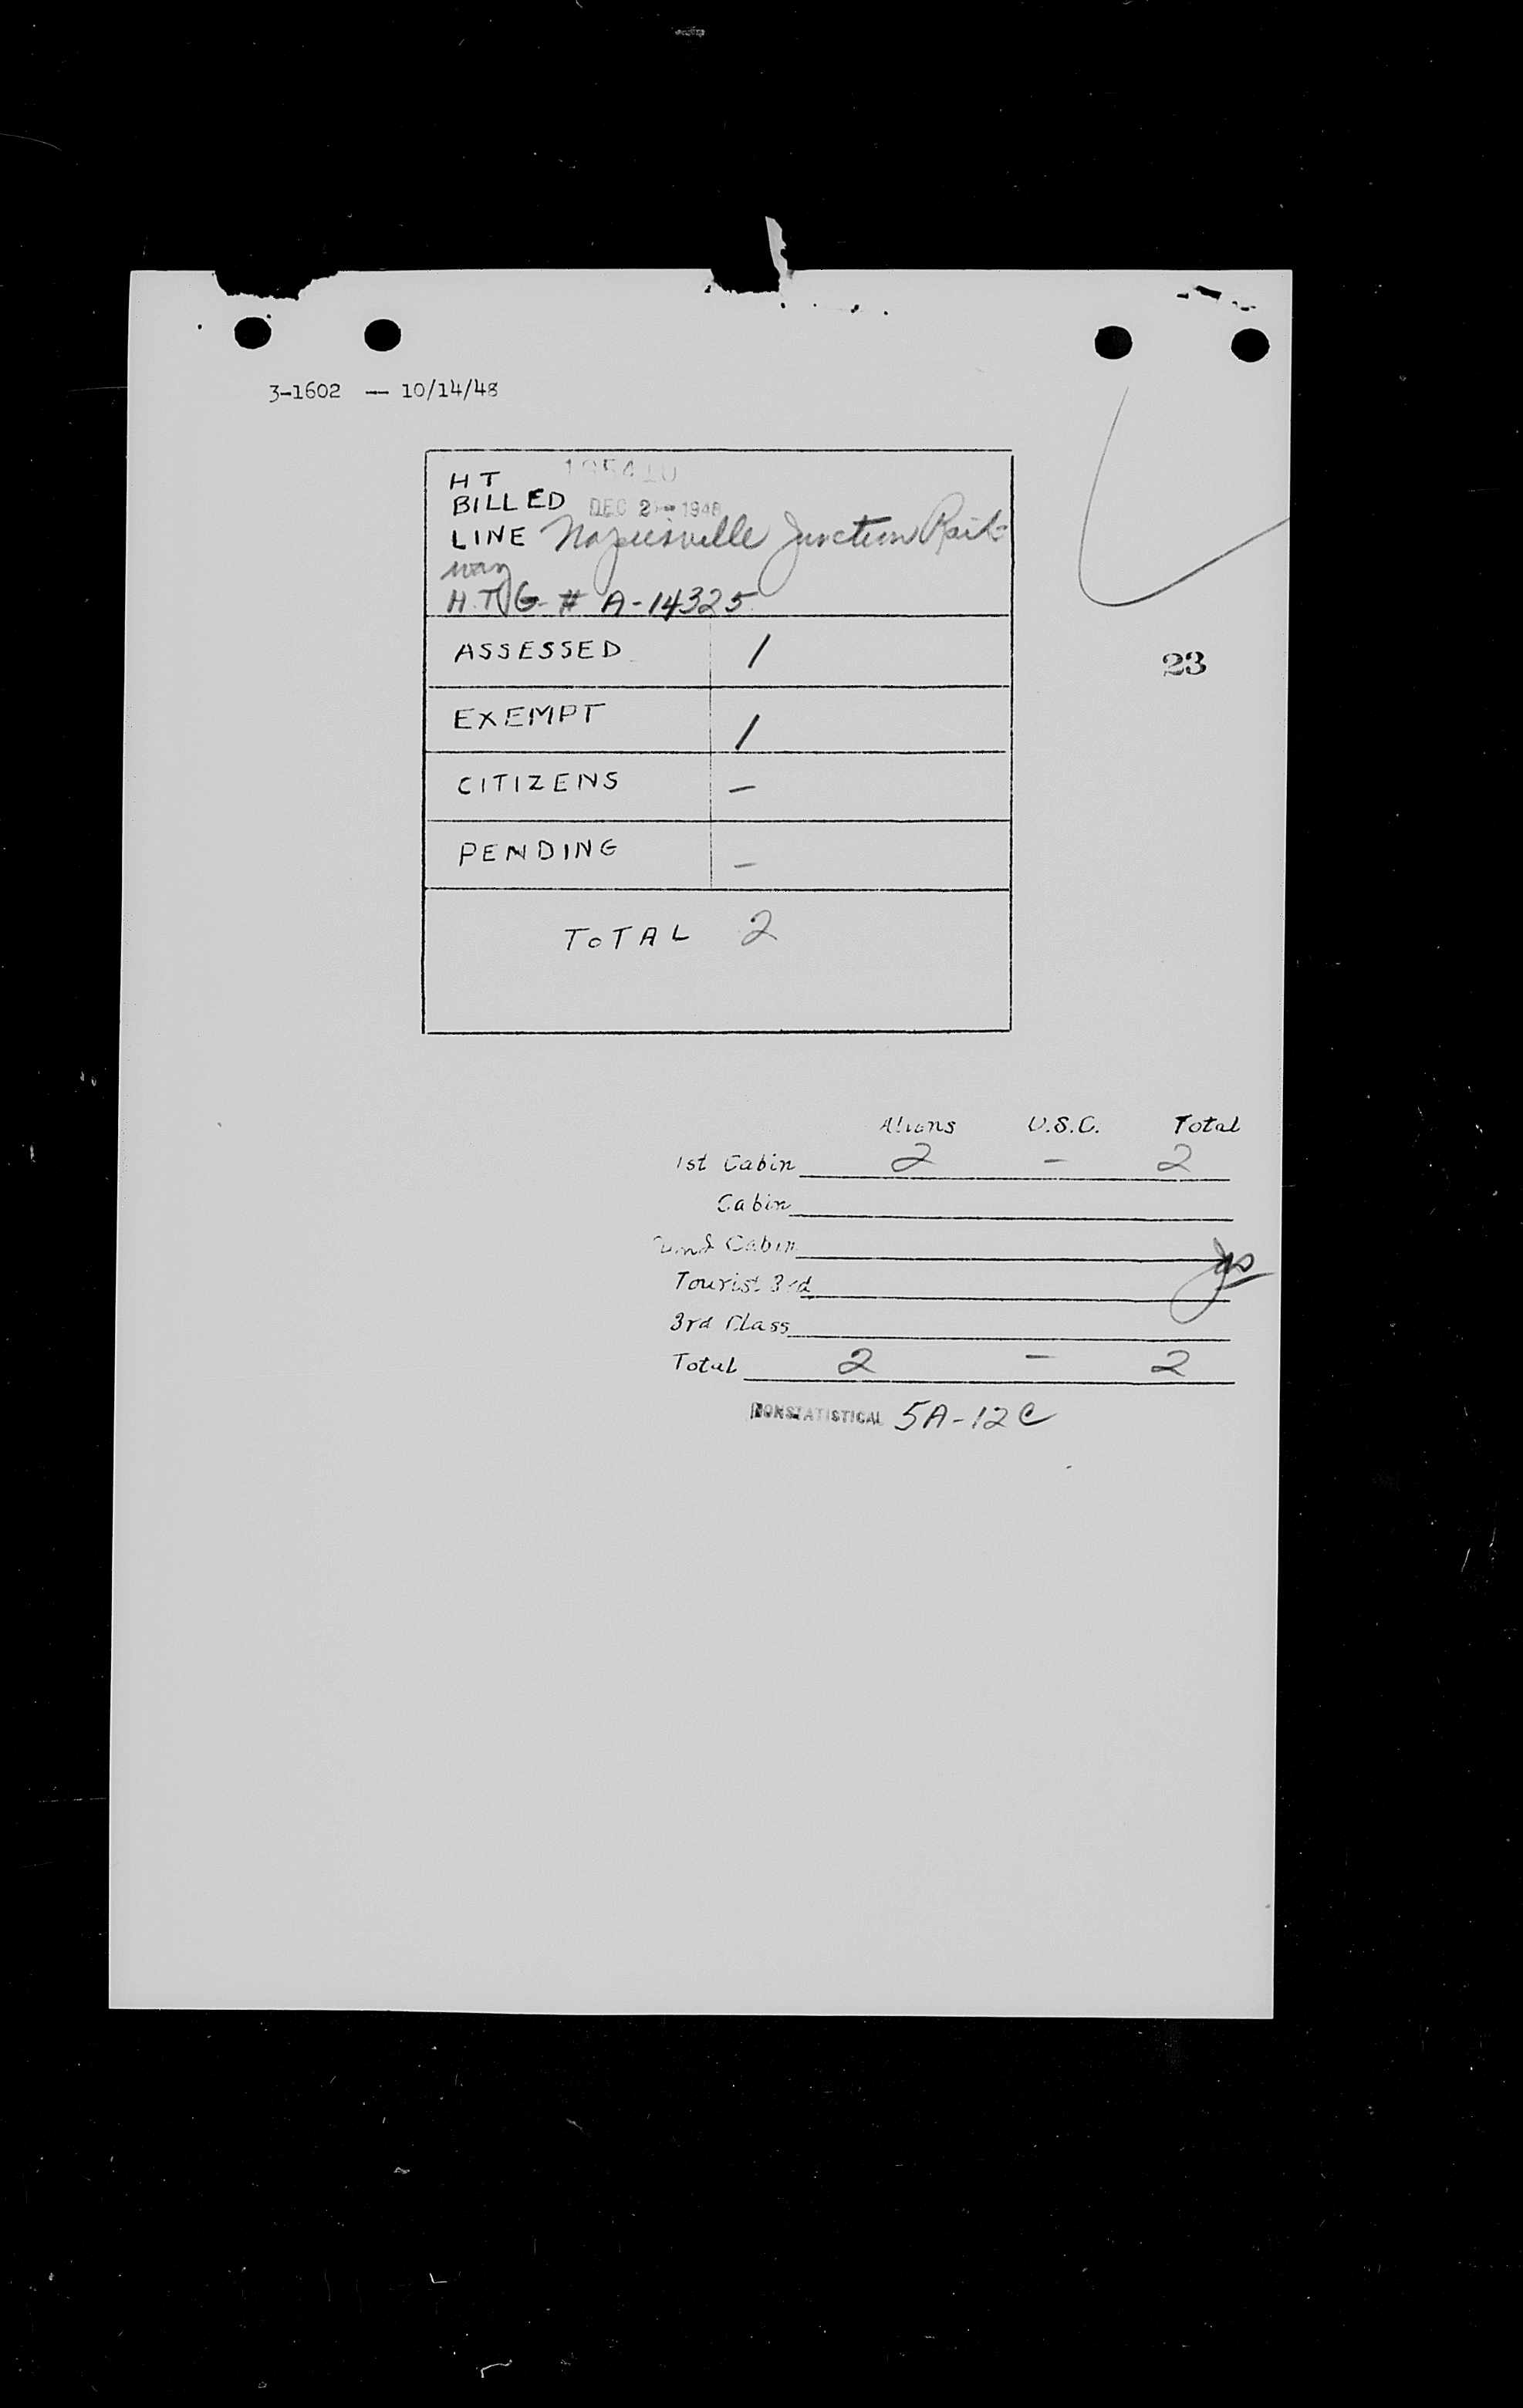 3-1602 — 10/14/48
HT
BILLED DEC 2 1948
LINE Napierville Junction Rail-
way
H.T.G. # A-14325
ASSESSED 1
23
EXEMPT 1
CITIZENS -
PENDING -
TOTAL 2
Aliens U.S.C. Total
1st Cabin 2 - 2
Cabin
2nd Cabin
Tourist 3rd
3rd Class
Total 2 - 2
NONSTATISTICAL 5A-12C